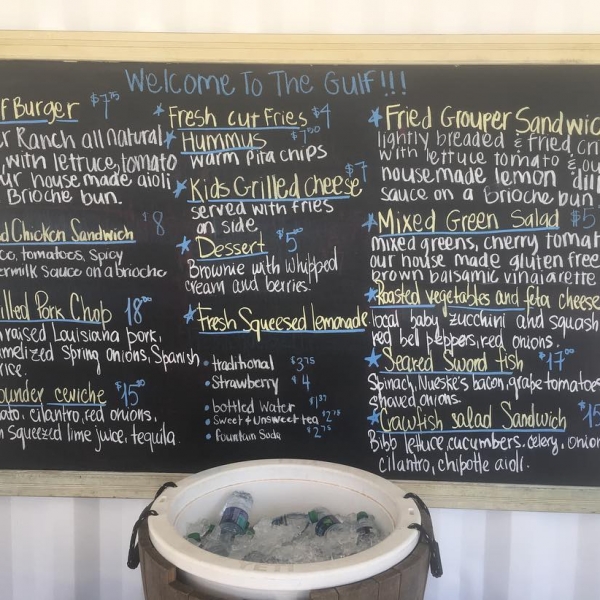 Welcome To The Gulf!!!
f Burger $7.75
r Ranch all natural
, with lettuce, tomato
ur housemade aioli
Brioche bun.
d Chicken Sandwich $8
co, tomatoes, spicy
ermilk sauce on a brioche
illed Pork Chop 18.00
raised Louisiana pork,
amelized spring onions, Spanish
rice.
ounder ceviche $15.00
ato, cilantro, red onions,
squeezed lime juice, tequila.
Fresh cut Fries $4
Hummus $7.00
warm pita chips
Kids Grilled cheese $7
served with fries
on side.
Dessert $5.00
Brownie with whipped
cream and berries.
Fresh Squeesed lemonade
• traditional $3.75
• Strawberry $4
• bottled Water
• Sweet & Unsweet tea
• Fountain Soda
Fried Grouper Sandwic
lightly breaded & fried, cri
with lettuce tomato & ou
housemade lemon dill
sauce on a brioche bun
Mixed Green Salad $5
mixed greens, cherry tomat
our house made gluten free
brown balsamic vinaigrette
Roasted vegetables and feta cheese
local baby zucchini and squash
red bell peppers, red onions.
Seared Sword fish $17.00
Spinach, Nueske's bacon, grape tomatoes
shaved onions.
Crawfish salad Sandwich $15
Bibb lettuce, cucumbers, celery, onion
cilantro, chipotle aioli.